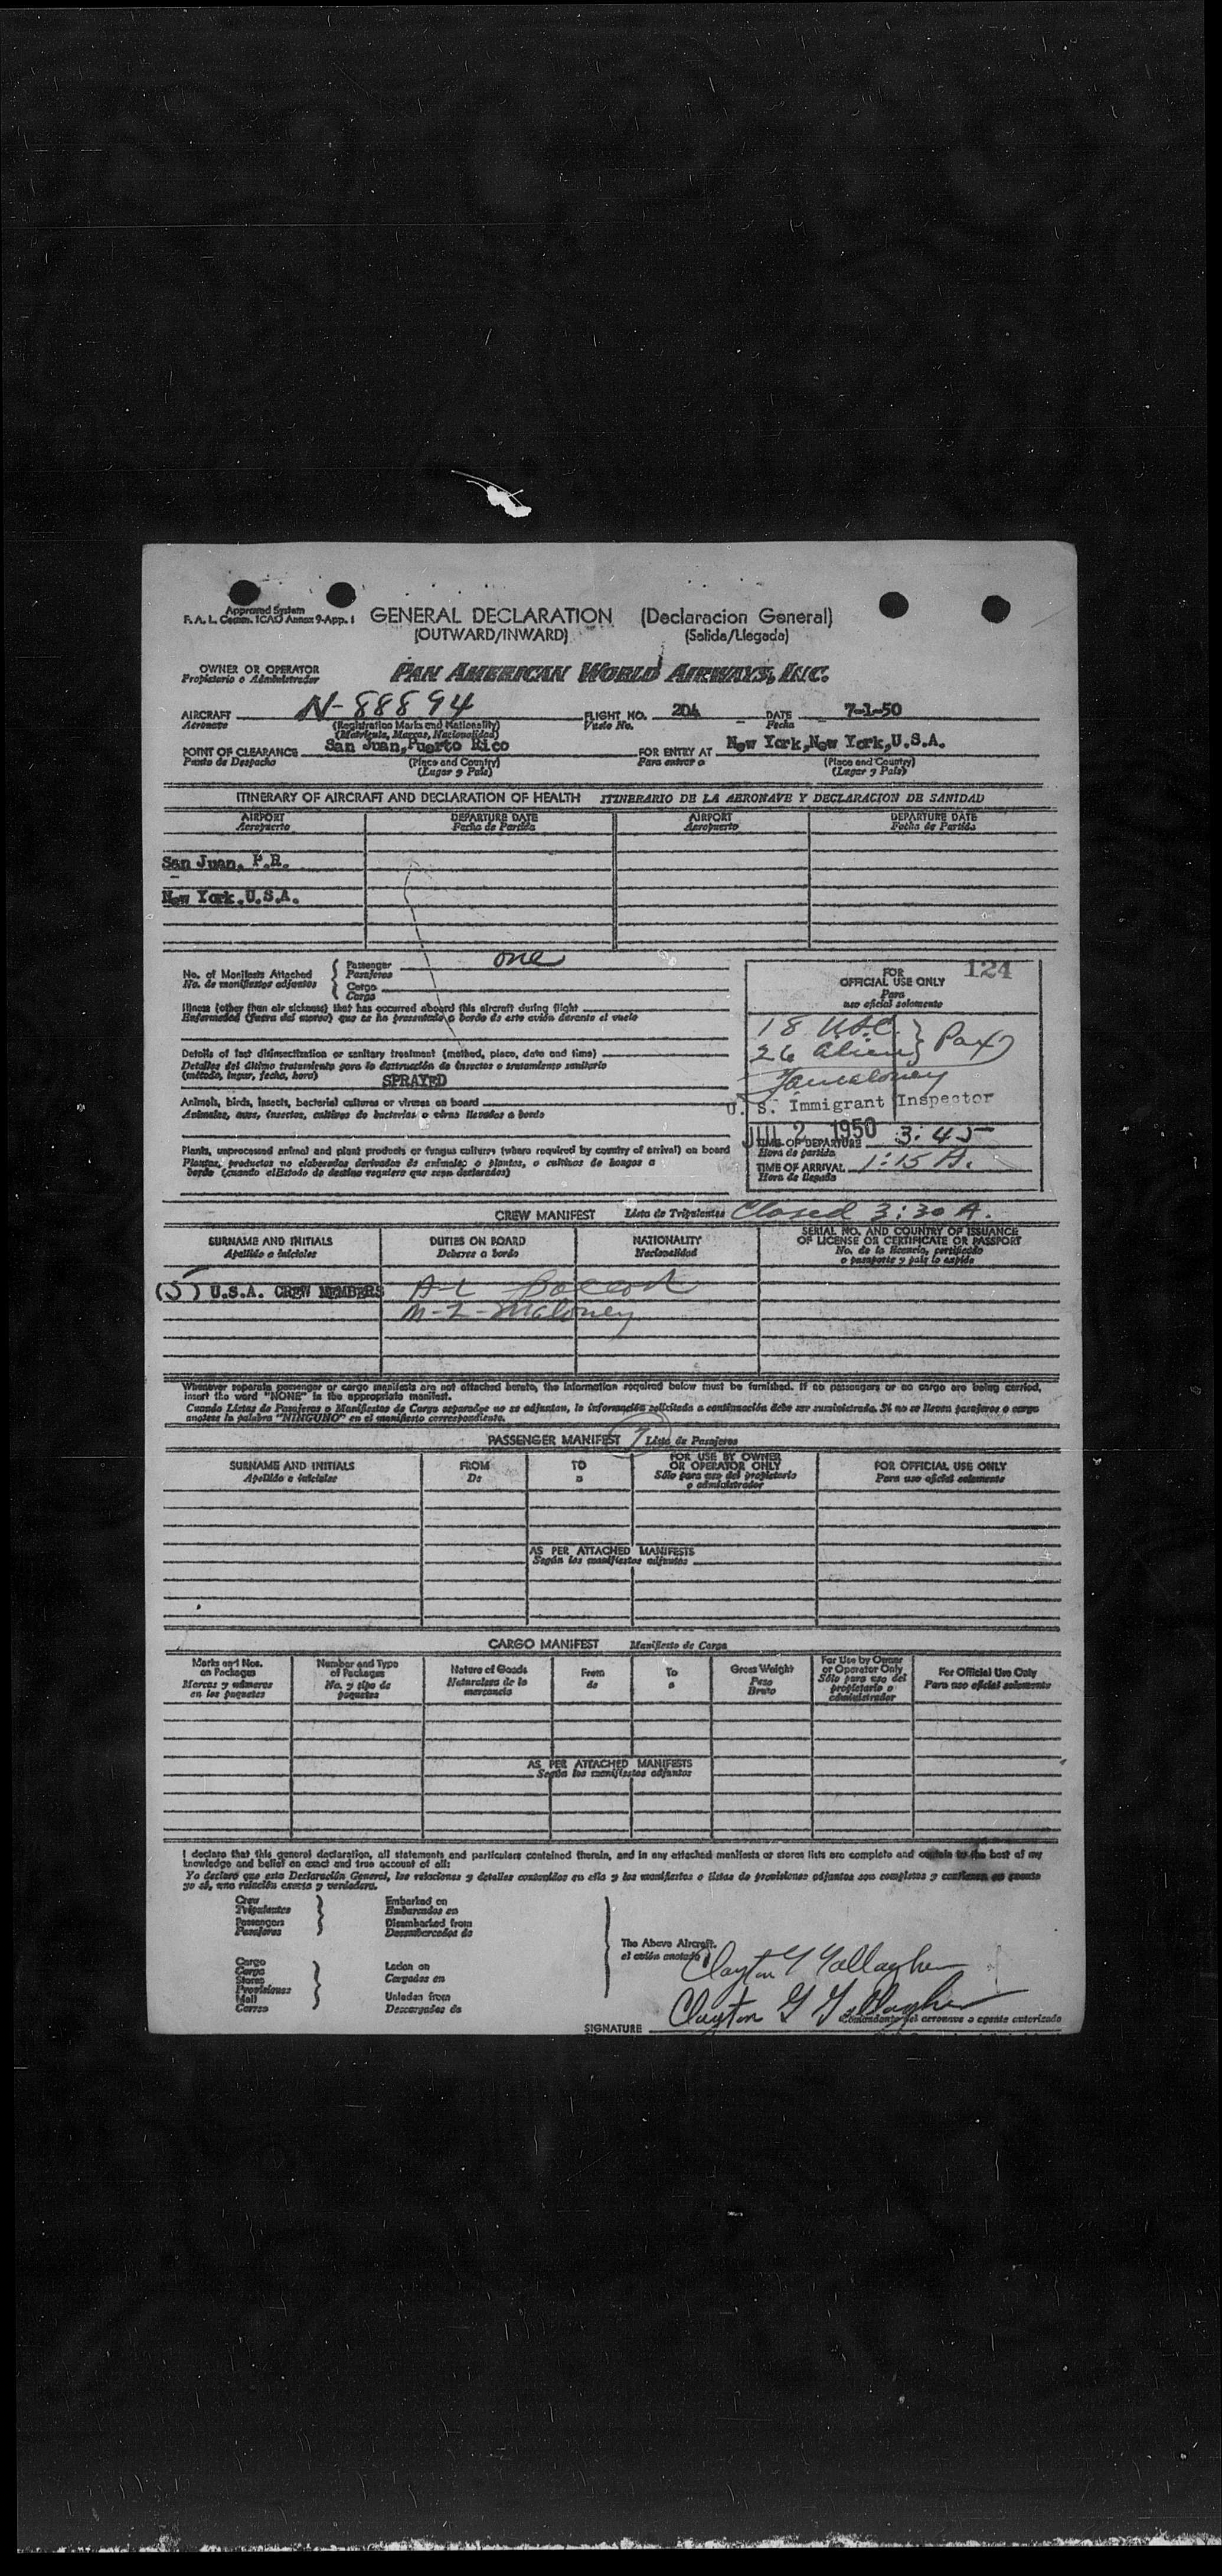 Approved System
F. A. L. Comm. ICAO Annex 9-App. 1
GENERAL DECLARATION (Declaracion General)
(OUTWARD/INWARD) (Salida/Llegada)
OWNER OR OPERATOR
Propietario o Administrador
PAN AMERICAN WORLD AIRWAYS, INC.
AIRCRAFT N-88894 FLIGHT NO. 204 DATE 7-1-50
Aeronave (Registration Marks and Nationality) Vuelo No. Fecha
(Matricula, Marcas, Nacionalidad)
POINT OF CLEARANCE San Juan,Puerto Rico FOR ENTRY AT New York,New York,U.S.A.
Punto de Despacho (Place and Country) Para entrar a (Place and Country)
(Lugar y Pais) (Lugar y Pais)
ITINERARY OF AIRCRAFT AND DECLARATION OF HEALTH ITINERARIO DE LA AERONAVE Y DECLARACION DE SANIDAD
AIRPORT DEPARTURE DATE AIRPORT DEPARTURE DATE
Aeropuerto Fecha de Partida Aeropuerto Fecha de Partida
San Juan, P.R.
New York,U.S.A.
No. of Manifests Attached
No. de manifiestos adjuntos
Passenger one
Pasajeros
Cargo
Carga
Illness (other than air sickness) that has occurred aboard this aircraft during flight
Enfermedad (fuera del mareo) que se ha presentado a bordo de este avión durante el vuelo
Details of last disinsectization or sanitary treatment (method, place, date and time)
Detalles del último tratamiento para la destrucción de insectos o tratamiento sanitario
(método, lugar, fecha, hora) SPRAYED
Animals, birds, insects, bacterial cultures or viruses on board
Animales, aves, insectos, cultivos de bacterias o virus llevados a bordo
Plants, unprocessed animal and plant products or fungus cultures (where required by country of arrival) on board
Plantas, productos no elaborados derivados de animales o plantas, o cultivos de hongos a
bordo (cuando el Estado de destino requiere que sean declarados)
124
FOR
OFFICIAL USE ONLY
Para
uso oficial solamente
18 U.S.C.
26 Aliens } Pax
U. S. Immigrant Inspector
JUL 2 1950
TIME OF DEPARTURE 3:45
Hora de partida
TIME OF ARRIVAL 1:15 A.
Hora de llegada
CREW MANIFEST Lista de Tripulantes Closed 3:30 A.
SURNAME AND INITIALS DUTIES ON BOARD NATIONALITY SERIAL NO. AND COUNTRY OF ISSUANCE
OF LICENSE OR CERTIFICATE OR PASSPORT
Apellido e iniciales Deberes a bordo Nacionalidad No. de la licencia, certificado
o pasaporte y pais lo expide
(5) U.S.A. CREW MEMBERS A-L
M-L-Maloney
Whenever separate passenger or cargo manifests are not attached hereto, the information required below must be furnished. If no passengers or no cargo are being carried,
insert the word "NONE" in the appropriate manifest.
Cuando Listas de Pasajeros o Manifiestos de Carga separados no se adjuntan, la información solicitada a continuación debe ser suministrada. Si no se llevan pasajeros o carga
anotese la palabra "NINGUNO" en el manifiesto correspondiente.
PASSENGER MANIFEST Lista de Pasajeros
SURNAME AND INITIALS FROM TO FOR USE BY OWNER
OR OPERATOR ONLY FOR OFFICIAL USE ONLY
Apellido e iniciales De a Sólo para uso del propietario
o administrador Para uso oficial solamente
AS PER ATTACHED MANIFESTS
Según los manifiestos adjuntos
CARGO MANIFEST Manifiesto de Carga
Marks and Nos.
on Packages
Marcas y números
en los paquetes
Number and Type
of Packages
No. y tipo de
paquetes
Nature of Goods
Naturaleza de la
mercancia
From
de
To
a
Gross Weight
Peso
Bruto
For Use by Owner
or Operator Only
Sólo para uso del
propietario o
administrador
For Official Use Only
Para uso oficial solamente
AS PER ATTACHED MANIFESTS
Según los manifiestos adjuntos
I declare that this general declaration, all statements and particulars contained therein, and in any attached manifests or stores lists are complete and contain to the best of my
knowledge and belief an exact and true account of all:
Yo declaro que esta Declaración General, las relaciones y detalles contenidos en ella y los manifiestos o listas de provisiones adjuntos son completos y contienen en cuanto
yo sé, una relación exacta y verdadera.
Crew
Tripulantes
Passengers
Pasajeros
Embarked on
Embarcados en
Disembarked from
Desembarcados de
Cargo
Carga
Stores
Provisiones
Mail
Correo
Laden on
Cargados en
Unladen from
Descargados de
The Above Aircraft.
el avión anotado
Clayton G Gallagher
Clayton G Gallagher
SIGNATURE Comandante del aeronave o agente autorizado